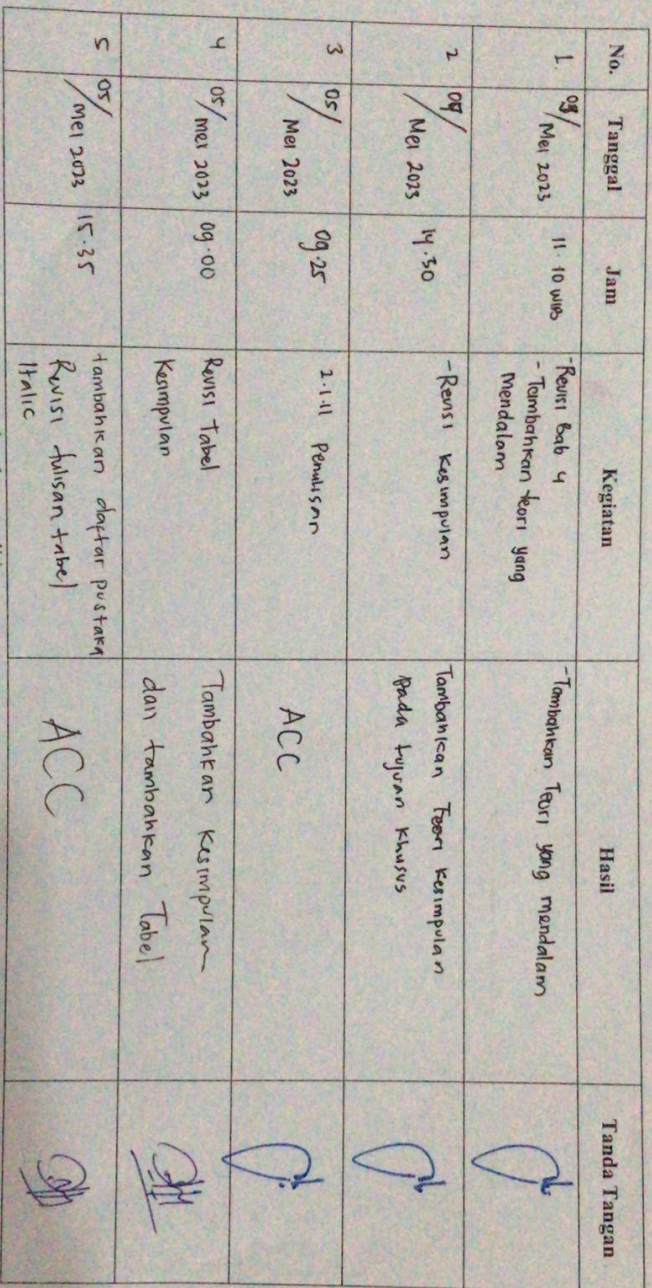 No. Tanggal Jam Kegiatan Hasil Tanda Tangan
1. 03/ Mei 2023 11.10 WIB -Revisi Bab 4 -Tambahkan Teori yang mendalam
- Tambahkan teori yang
mendalam
2 04/ Mei 2023 14.30 -Revisi Kesimpulan Tambahkan Teori Kesimpulan
pada tujuan khusus
3 05/ Mei 2023 09.25 2.1.11 Penulisan ACC
4 05/ mei 2023 09.00 Revisi Tabel Tambahkan Kesimpulan
Kesimpulan dan tambahkan Tabel
5 05/ Mei 2023 15.35 tambahkan daftar pustaka ACC
Revisi tulisan tabel
Italic